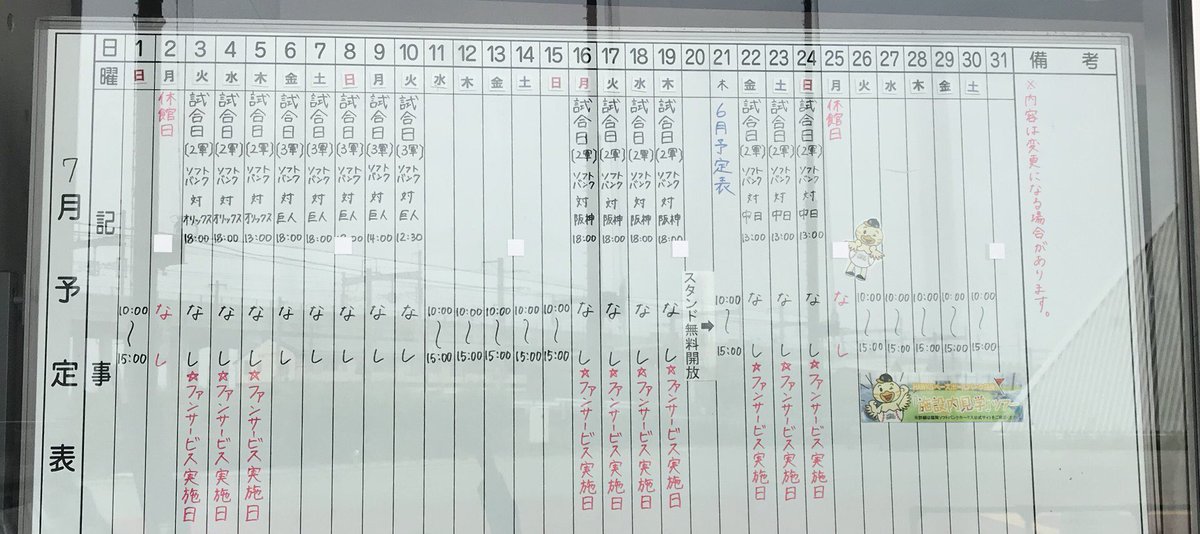 7月予定表
日 1 2 3 4 5 6 7 8 9 10 11 12 13 14 15 16 17 18 19 20 21 22 23 24 25 26 27 28 29 30 31 備考
曜 日 月 火 水 木 金 土 日 月 火 水 木 金 土 日 月 火 水 木 木 金 土 日 月 火 水 木 金 土
記事
10:00〜15:00
休館日 なし
試合日(2軍)ソフトバンク対オリックス18:00 なし ☆ファンサービス実施日
試合日(2軍)ソフトバンク対オリックス18:00 なし ☆ファンサービス実施日
試合日(2軍)ソフトバンク対オリックス13:00 なし ☆ファンサービス実施日
試合日(3軍)ソフトバンク対巨人18:00 なし
試合日(3軍)ソフトバンク対巨人18:00 なし
試合日(3軍)ソフトバンク対巨人 なし
試合日(3軍)ソフトバンク対巨人14:00 なし
試合日(3軍)ソフトバンク対巨人12:30 なし
10:00〜15:00
10:00〜15:00
10:00〜15:00
10:00〜15:00
10:00〜15:00
試合日(2軍)ソフトバンク対阪神18:00 なし ☆ファンサービス実施日
試合日(2軍)ソフトバンク対阪神18:00 なし ☆ファンサービス実施日
試合日(2軍)ソフトバンク対阪神18:00 なし ☆ファンサービス実施日
試合日(2軍)ソフトバンク対阪神18:00 なし ☆ファンサービス実施日
スタンド無料開放➡
6月予定表 10:00〜15:00
試合日(2軍)ソフトバンク対中日13:00 なし ☆ファンサービス実施日
試合日(2軍)ソフトバンク対中日13:00 なし ☆ファンサービス実施日
試合日(2軍)ソフトバンク対中日13:00 なし ☆ファンサービス実施日
休館日 なし
10:00〜15:00
10:00〜15:00
10:00〜15:00
10:00〜15:00
10:00〜15:00
※内容は変更になる場合があります。
施設内見学ツアー